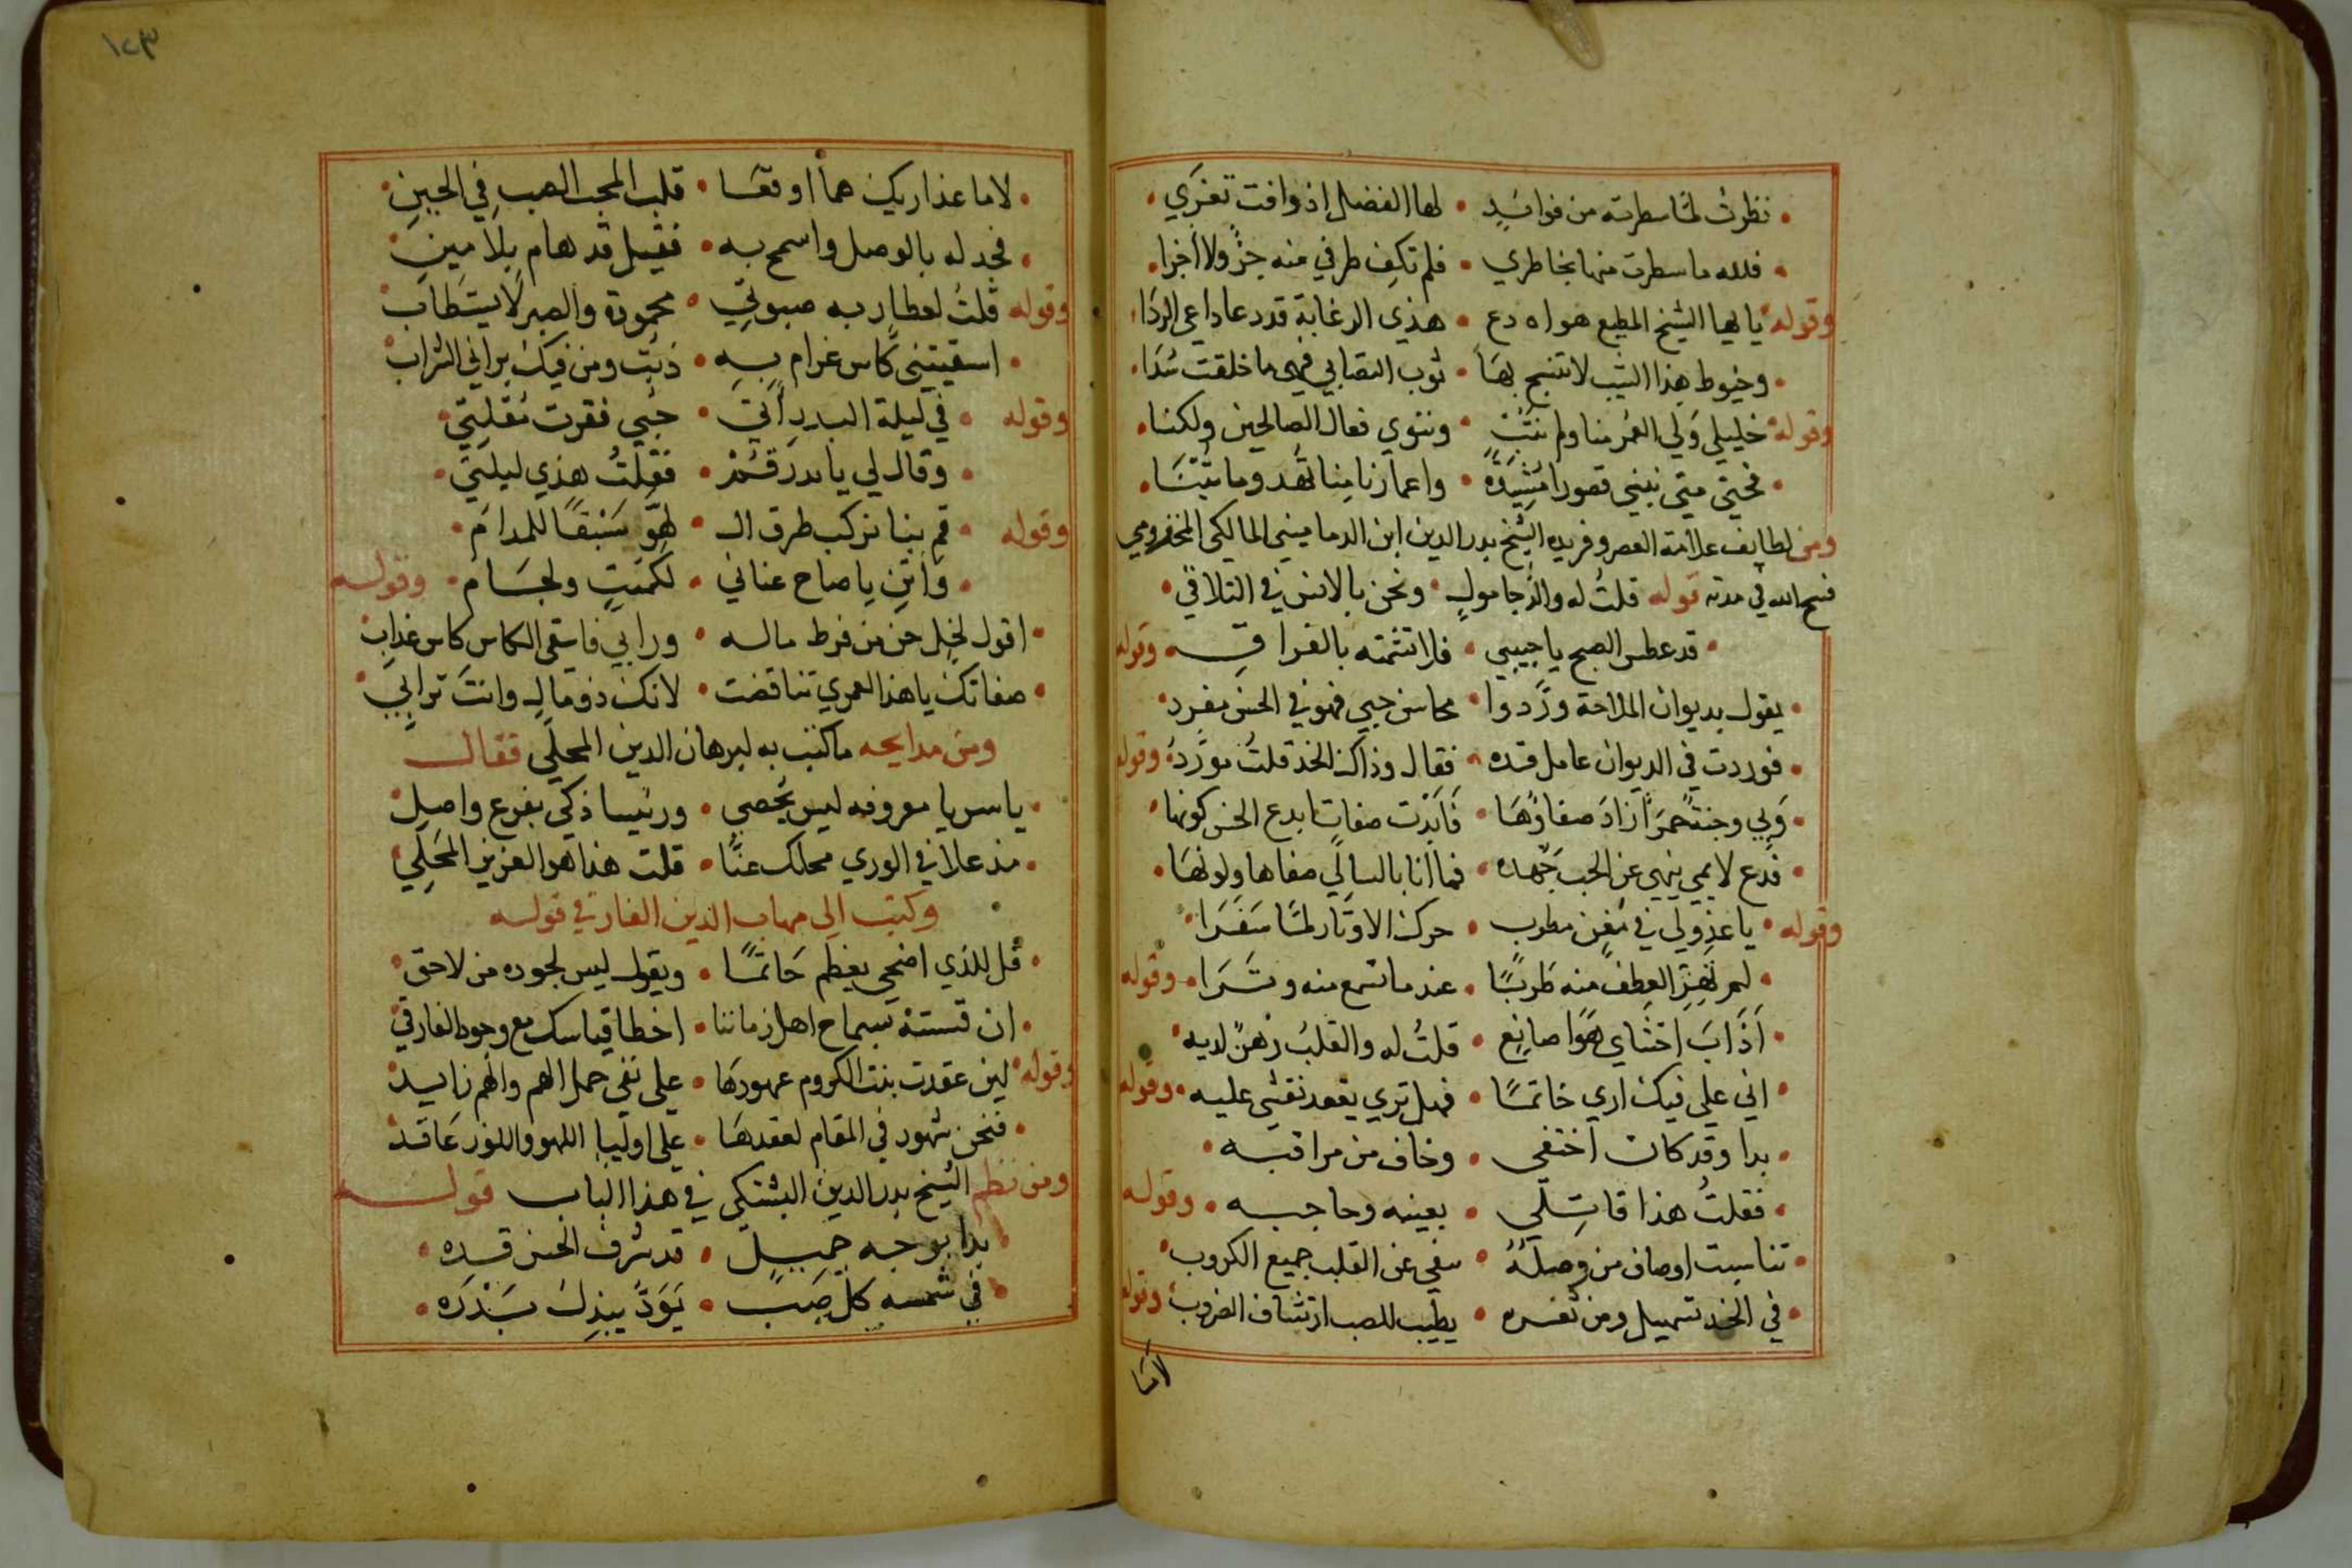 نظرت لما سطرته من فوائد • لها الفضل اذ وافت تغري
فلله ما سطرت منها بخاطري • فلم تكف طرفي منه جز ولا اجزا
وقوله يا ايها الشيخ المطيع هواه دع • هذي الدعابة قد دعا داعي الردا
وخيوط هذا الشيب لا تنسج بها • ثوب التصابي فهي ما خلقت سدا
وقوله خليلي ولي العمر منا ولم نتب • وننوي فعال الصالحين ولكنا
فحتي متي نبني قصورا مشيدة • واعمارنا منا تهد وما تبنا
ومن لطايف علامة العصر وفريده الشيخ بدر الدين ابن الدماميني المالكي المخزومي
فسح الله في مدته قوله قلت له والدجا مول • ونحن بالانس في التلاقي
قد عطس الصبح يا حبيبي • فلا تشمته بالفراق وقوله
يقول بديوان الملاحة وردوا • محاسن حبي فهو في الحسن مفرد
فوردت في الديوان عامل قده • فقال وذاك الخد قلت مورد وقوله
ولي وجنة حمرا زاد صفاؤها • فابدت صفات ابدع الحسن كونها
فدع لايمي ينهي عن الحب جهده • فما انا بالسالي صفاها ولونها
وقوله يا عذولي في مغن مطرب • حرك الاوتار لما سفرا
لم تهز العطف منه طربا • عند ما تسمع منه وترا وقوله
اذاب احشاي هوا صانع • قلت له والقلب رهن لديه
اني علي فيك اري خاتما • فهل تري يقعد نقشي عليه وقوله
بدا وقد كان اختفي • وخاف من مراقبه
فقلت هذا قاتلي • بعينه وحاجبه وقوله
تناسبت اوصاف من وصله • ينفي عن القلب جميع الكروب
في الخد تسهيل ومن ثغره • يطيب للصب ارتشاف الضروب وقوله
لاما
١٢٣
لاما عذاريك هما اوقعا • قلب المحب الصب في الحين
فجد له بالوصل واسمح به • ففيك قد هام بلا مين
وقوله قلت لعطار به صبوتي • محمودة والصبر لا يستطاب
اسقيتني كاس غرام به • ذبت ومن فيك براني الشراب
وقوله في ليلة البدر اتي • حبي فقرت مقلتي
وقال لي يا بدر قم • فقلت هذي ليلتي
وقوله قم بنا نركب طرف ال • لهو سبقا للمدام
واثن يا صاح عناني • لكميت ولجام وقوله
اقول لخل حن من فرط ماله • ورابي فاسقي الكاس كاس عذاب
صفاتك يا هذا العمري تناقضت • لانك ذو مال وانت ترابي
ومن مدايحه ما كتب به لبرهان الدين المحلي فقال
يا سريا معروفه ليس يحصي • ورئيسا زكي بفرع واصل
مذ علا في الوري محلك عنا • قلت هذا هو العزيز المحلي
وكتب الي شهاب الدين الفارقي قوله
قل للذي اضحي يعظم حاتما • ويقول ليس لجوده من لاحق
ان قسته بسماح اهل زماننا • اخطا قياسك مع وجود الفارقي
وقوله لين عقدت بنت الكروم عهودها • علي نفي حمل الهم والهم زايد
فنحن شهود في المقام لعقدها • علي اوليا اللهو والنور عاقد
ومن نظم الشيخ بدر الدين البشتكي في هذا الباب قوله
بدا بوجه جميل • قد شرف الحسن قدره
في شمسه كل صب • يود يبذل بدره